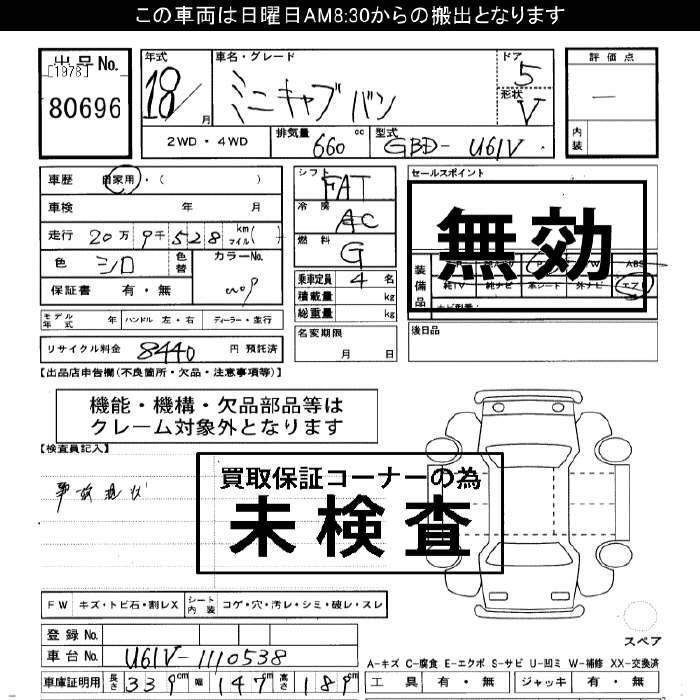 この車両は日曜日AM8:30からの搬出となります
出品No.
[1978]
80696
年式 18/ 月
車名・グレード ミニキャブ バン
ドア 5
形状 V
評価点
―
内装
2WD・4WD 排気量 660 cc 型式 GBD- U61V
車歴 自家用・( )
車検 年 月
走行 20万9千528 km マイル( )
色 シロ 色替 カラーNo.
保証書 有・無
シフト FAT
冷房 AC
燃料 G
乗車定員 4 名
積載量 kg
総重量 kg
名変期限 月 日
セールスポイント
無効
装備品
純TV 純ナビ 革シート 外ナビ エアB
後日品
モデル年式 年 ハンドル 左・右 ディーラー・並行
リサイクル料金 8440 円 預託済
【出品店申告欄(不良箇所・欠品・注意事項等)】
機能・機構・欠品部品等は
クレーム対象外となります
【検査員記入】
買取保証コーナーの為
未検査
FW キズ・トビ石・割レX シート内装 コゲ・穴・汚レ・シミ・破レ・スレ
スペア
登録No.
車台No. U61V-1110538
A-キズ C-腐食 E-エクボ S-サビ U-凹ミ W-補修 XX-交換済
車庫証明用 長さ 339cm 幅 147cm 高さ 189cm
工具 有・無 ジャッキ 有・無